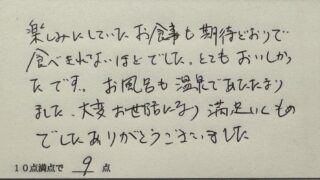 楽しみにしていたお食事も期待どおりで
食べきれないほどでした。とてもおいしかっ
たです。 お風呂も温泉であたたまり
ました。大変お世話になり 満足いくもの
でしたありがとうございました
10点満点で 9 点